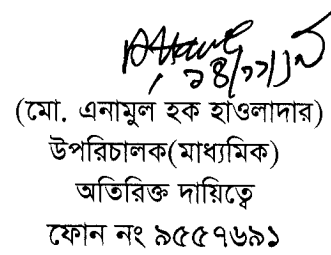 (মো. এনামুল হক হাওলাদার)
উপরিচালক(মাধ্যমিক)
অতিরিক্ত দায়িত্বে
ফোন নং ৯৫৫৭৬৯১